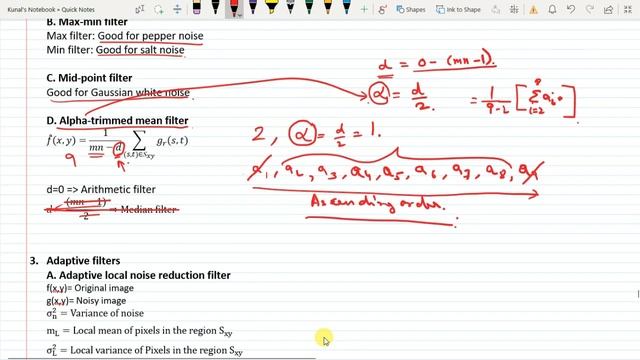 Kunal's Notebook » Quick Notes
B. Max-min filter
Max filter: Good for pepper noise
Min filter: Good for salt noise
C. Mid-point filter
Good for Gaussian white noise
D. Alpha-trimmed mean filter
f̂(x,y) = 1/(mn − d) ∑(s,t)∈Sxy gr(s,t)
9
d=0 => Arithmetic filter
d = (mn−1)/2 => Median filter
d = 0 - (mn-1).
α = d/2 = 1/(9-2) [∑ ai].
2, α = d/2 = 1.
a1, a2, a3, a4, a5, a6, a7, a8, a9
Ascending order.
3. Adaptive filters
A. Adaptive local noise reduction filter
f(x,y)= Original image
g(x,y)= Noisy image
σn² = Variance of noise
mL = Local mean of pixels in the region Sxy
σL² = Local variance of Pixels in the region Sxy